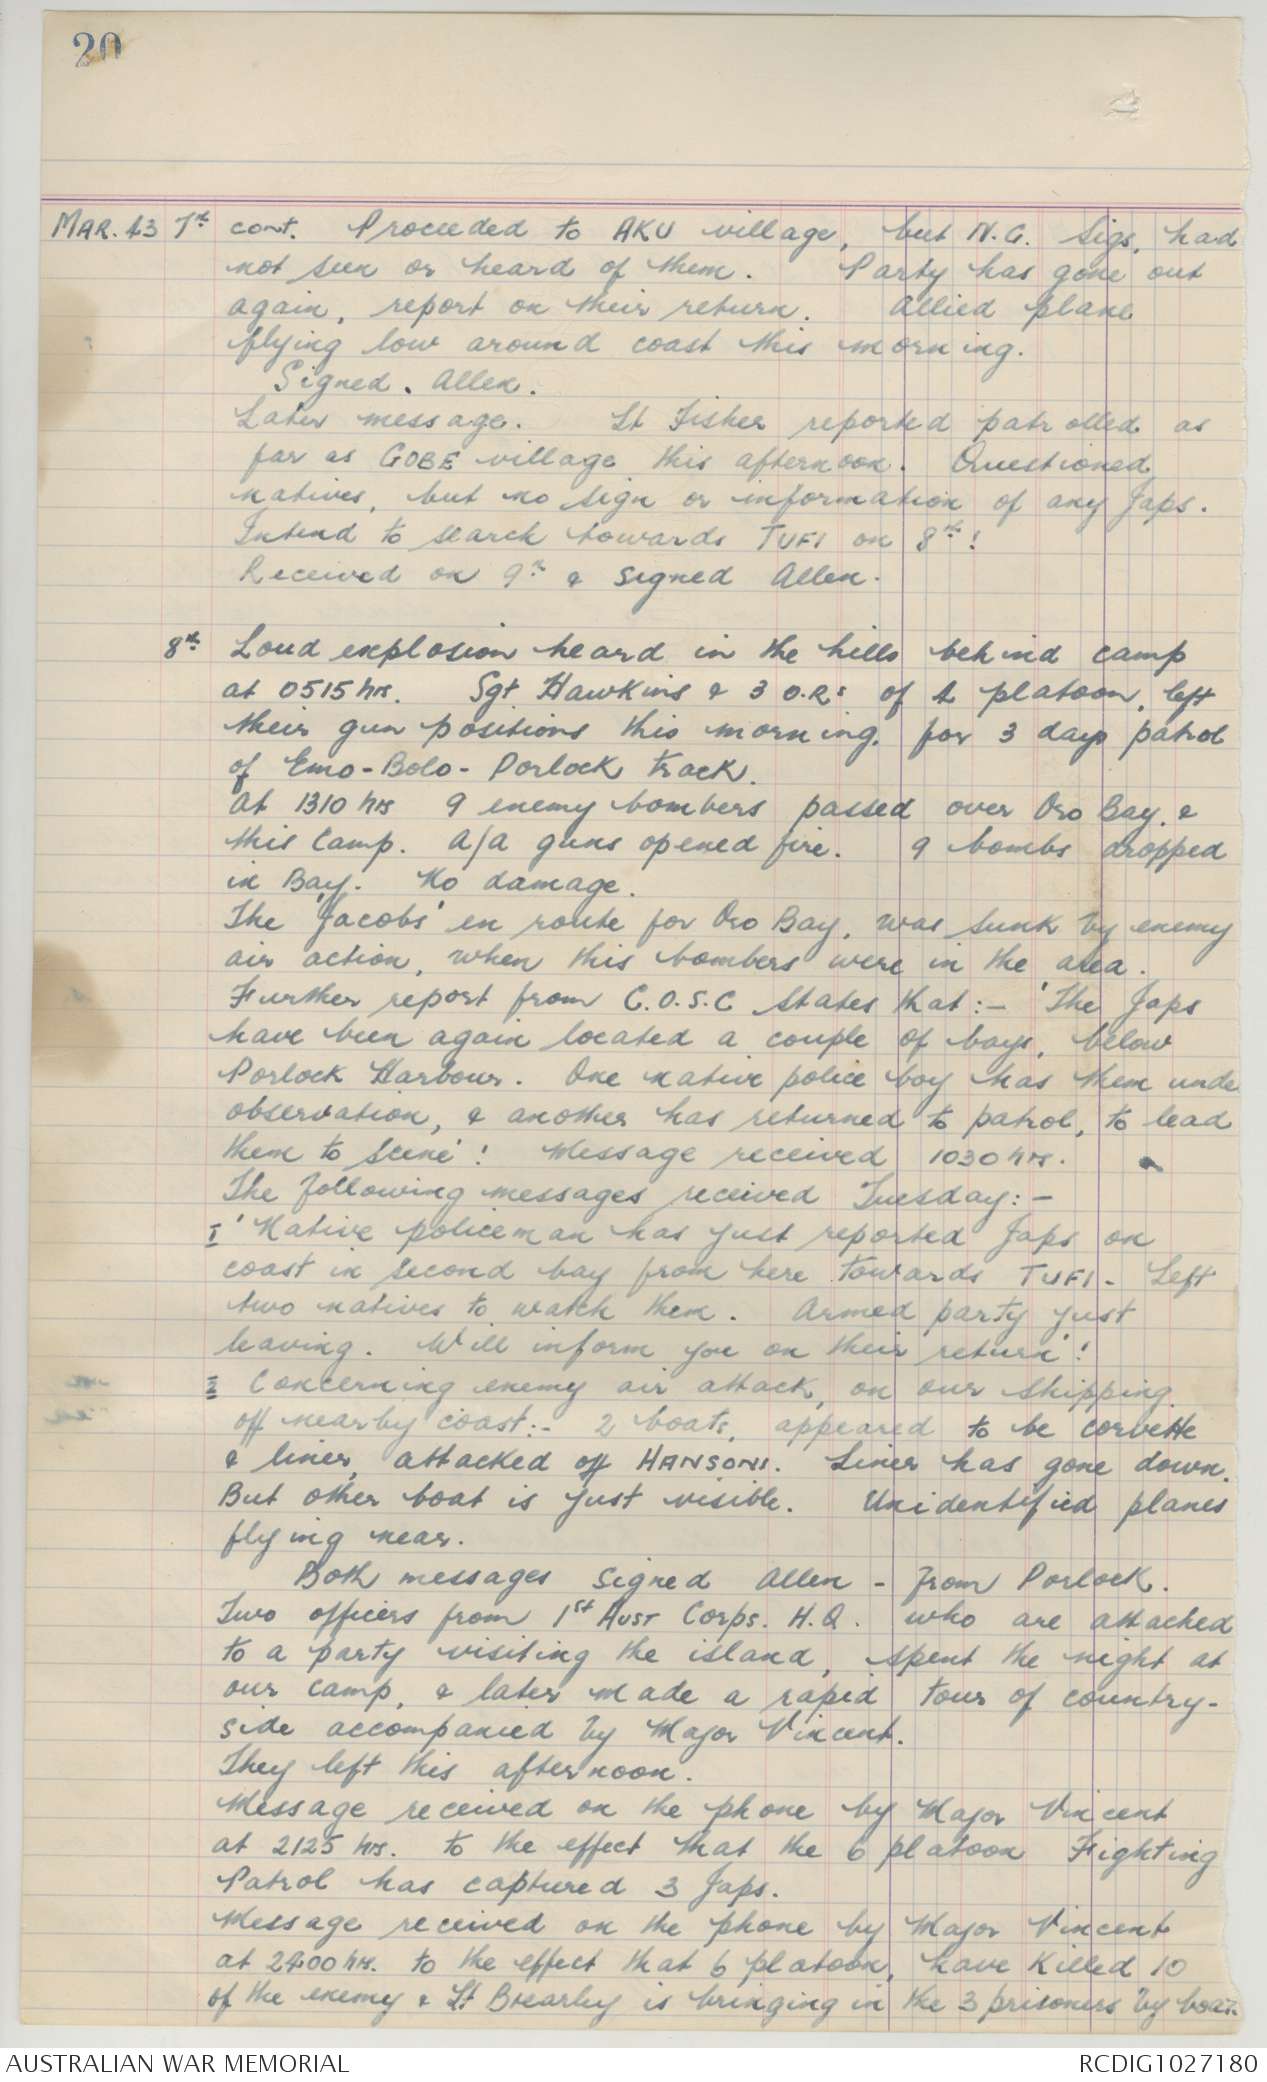 20
MAR. 43 7th cont. Proceeded to AKU village, but N.G. Sigs, had
not seen or heard of them. Party has gone out
again, report on their return. Allied plane
flying low around coast this morning.
Signed. Allen.
Later message. Lt Fisher reported patrolled as
far as GOBE village this afternoon. Questioned
natives, but no sign or information of any Japs.
Intend to search towards TUFI on 8th!
Received on 9th & signed Allen.
8th Loud explosion heard in the hills behind camp
at 0515 hrs. Sgt Hawkins & 3 O.Rs of 2 platoon, left
their gun positions this morning, for 3 days patrol
of Emo-Bolo-Porlock track.
At 1310 hrs 9 enemy bombers passed over Oro Bay, &
this Camp. A/A guns opened fire. 9 bombs dropped
in Bay. No damage.
The 'Jacobs' en route for Oro Bay, was sunk by enemy
air action, when this bombers were in the area.
Further report from C.O.S.C states that:- 'The Japs
have been again located a couple of bays, below
Porlock Harbour. One native police boy has them unde
observation, & another has returned to patrol, to lead
them to scene'! Message received 1030 hrs.
The following messages received Tuesday:-
1 'Native policeman has just reported Japs on
coast in second bay from here towards TUFI - Left
two natives to watch them. Armed party just
leaving. Will inform you on their return'!
2 Concerning enemy air attack, on our shipping
off nearby coast:- 2 boats, appeared to be corvette
& liner, attacked off HANSONS. Liner has gone down.
But other boat is just visible. Unidentified planes
flying near.
Both messages signed Allen - from Porlock.
Two officers from 1st Aust Corps. H.Q. who are attached
to a party visiting the island, spent the night at
our camp, & later made a rapid tour of country-
side accompanied by Major Vincent.
They left this afternoon.
Message received on the phone by Major Vincent
at 2125 hrs. to the effect that the 6 platoon Fighting
Patrol has captured 3 Japs.
Message received on the phone by Major Vincent
at 2400 hrs. to the effect that 6 platoon, have killed 10
of the enemy & Lt Brearley is bringing in the 3 prisoners by boat.
AUSTRALIAN WAR MEMORIAL
RCDIG1027180